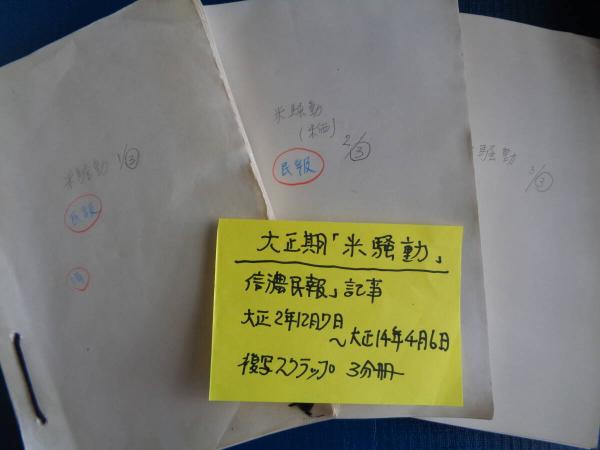 米騒動 1/3
民報
米騒動
(米価)
2/3
民報
騒動 3/3
大正期「米騒動」
信濃民報」記事
大正2年12月7日
〜大正14年4月6日
複写スクラップ 3分冊